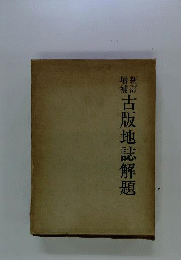 新訂
増補
古版地誌解題